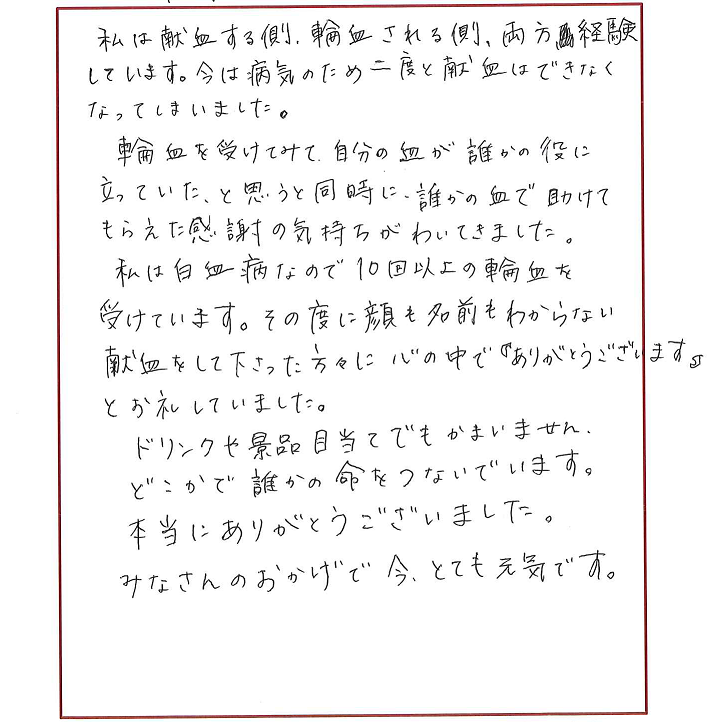 私は献血する側、輸血される側、両方経験
しています。今は病気のため二度と献血はできなく
なってしまいました。
輸血を受けてみて、自分の血が誰かの役に
立っていた、と思うと同時に、誰かの血で助けて
もらえた感謝の気持ちがわいてきました。
私は白血病なので10回以上の輸血を
受けています。その度に顔も名前もわからない
献血をして下さった方々に心の中で『ありがとうございます』
とお礼していました。
ドリンクや景品目当てでもかまいません、
どこかで誰かの命をつないでいます。
本当にありがとうございました。
みなさんのおかげで今、とても元気です。